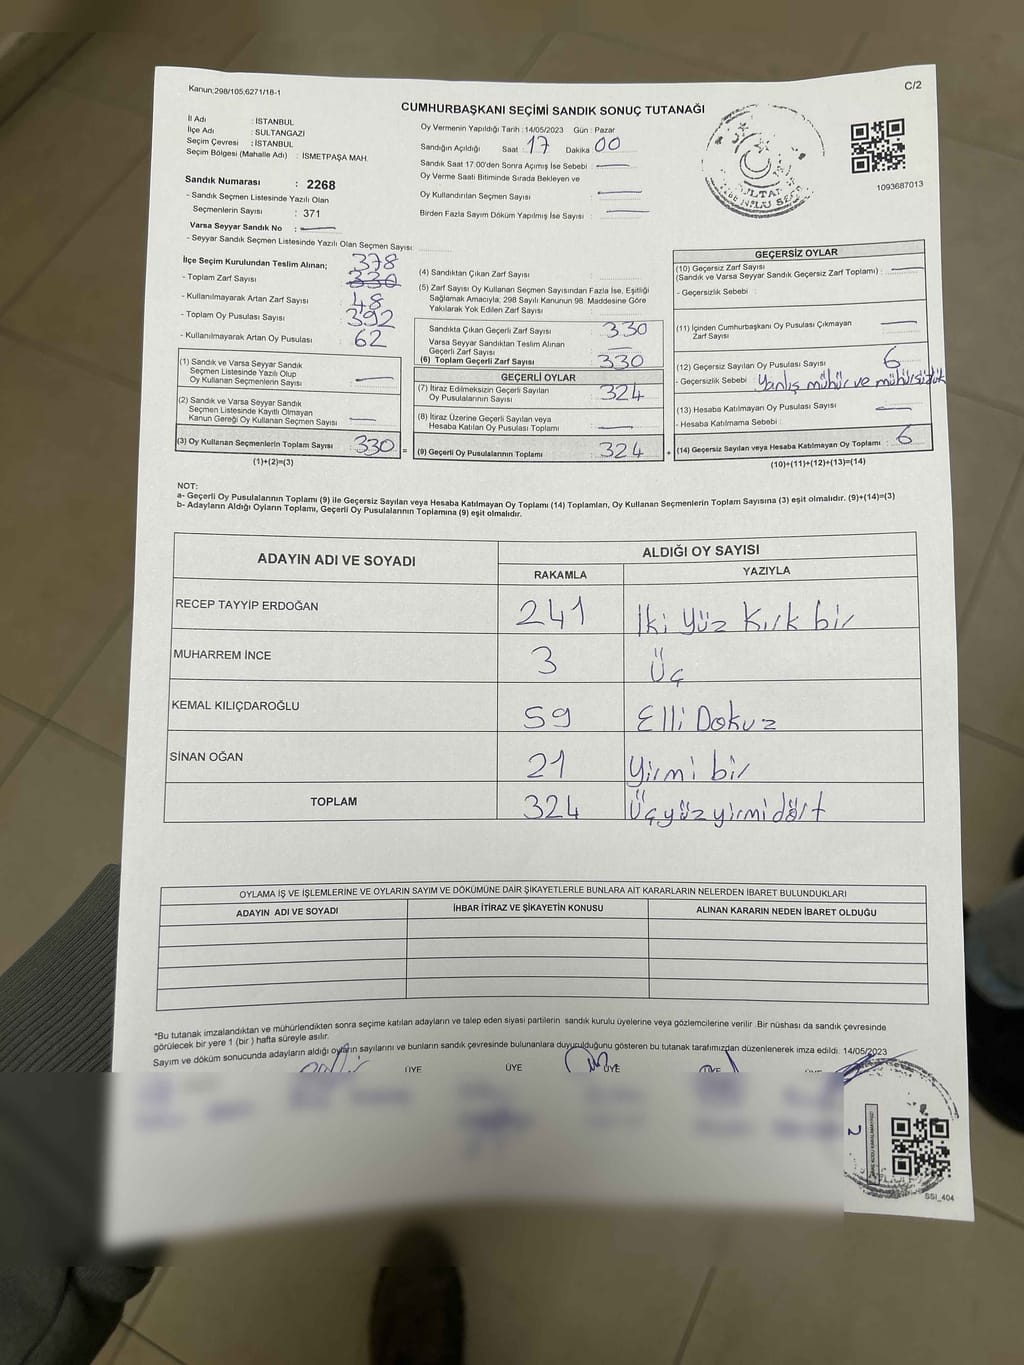 Kanun;298/105,6271/18-1
C/2
CUMHURBAŞKANI SEÇİMİ SANDIK SONUÇ TUTANAĞI
İl Adı : İSTANBUL
İlçe Adı : SULTANGAZİ
Seçim Çevresi : İSTANBUL
Seçim Bölgesi (Mahalle Adı) : İSMETPAŞA MAH.
Sandık Numarası : 2268
- Sandık Seçmen Listesinde Yazılı Olan
Seçmenlerin Sayısı : 371
Varsa Seyyar Sandık No :
- Seyyar Sandık Seçmen Listesinde Yazılı Olan Seçmen Sayısı:
Oy Vermenin Yapıldığı Tarih : 14/05/2023 Gün : Pazar
Sandığın Açıldığı Saat : 17 Dakika 00
Sandık Saat 17:00'den Sonra Açımış İse Sebebi :
Oy Verme Saati Bitiminde Sırada Bekleyen ve
Oy Kullandırılan Seçmen Sayısı :
Birden Fazla Sayım Döküm Yapılmış İse Sayısı :
1093687013
İlçe Seçim Kurulundan Teslim Alınan; 378
- Toplam Zarf Sayısı : 330
- Kullanılmayarak Artan Zarf Sayısı : 48
- Toplam Oy Pusulası Sayısı : 392
- Kullanılmayarak Artan Oy Pusulası : 62
(1) Sandık ve Varsa Seyyar Sandık
Seçmen Listesinde Yazılı Olup
Oy Kullanan Seçmenlerin Sayısı :
(2) Sandık ve Varsa Seyyar Sandık
Seçmen Listesinde Kayıtlı Olmayan
Kanun Gereği Oy Kullanan Seçmen Sayısı :
(3) Oy Kullanan Seçmenlerin Toplam Sayısı : 330 =
(1)+(2)=(3)
(4) Sandıktan Çıkan Zarf Sayısı :
(5) Zarf Sayısı Oy Kullanan Seçmen Sayısından Fazla İse, Eşitliği
Sağlamak Amacıyla; 298 Sayılı Kanunun 98. Maddesine Göre
Yakılarak Yok Edilen Zarf Sayısı :
Sandıkta Çıkan Geçerli Zarf Sayısı : 330
Varsa Seyyar Sandıktan Teslim Alınan
Geçerli Zarf Sayısı :
(6) Toplam Geçerli Zarf Sayısı : 330
GEÇERLİ OYLAR
(7) İtiraz Edilmeksizin Geçerli Sayılan
Oy Pusulalarının Sayısı : 324
(8) İtiraz Üzerine Geçerli Sayılan veya
Hesaba Katılan Oy Pusulası Toplamı :
(9) Geçerli Oy Pusulalarının Toplamı : 324 +
GEÇERSİZ OYLAR
(10) Geçersiz Zarf Sayısı
(Sandık ve Varsa Seyyar Sandık Geçersiz Zarf Toplamı) :
- Geçersizlik Sebebi :
(11) İçinden Cumhurbaşkanı Oy Pusulası Çıkmayan
Zarf Sayısı :
(12) Geçersiz Sayılan Oy Pusulası Sayısı : 6
- Geçersizlik Sebebi : Yanlış mühür ve mühürsüzlük
(13) Hesaba Katılmayan Oy Pusulası Sayısı :
- Hesaba Katılmama Sebebi :
(14) Geçersiz Sayılan veya Hesaba Katılmayan Oy Toplamı : 6
(10)+(11)+(12)+(13)=(14)
NOT:
a- Geçerli Oy Pusulalarının Toplamı (9) ile Geçersiz Sayılan veya Hesaba Katılmayan Oy Toplamı (14) Toplamları, Oy Kullanan Seçmenlerin Toplam Sayısına (3) eşit olmalıdır. (9)+(14)=(3)
b- Adayların Aldığı Oyların Toplamı, Geçerli Oy Pusulalarının Toplamına (9) eşit olmalıdır.
ADAYIN ADI VE SOYADI
ALDIĞI OY SAYISI
RAKAMLA YAZIYLA
RECEP TAYYİP ERDOĞAN 241 İki yüz kırk bir
MUHARREM İNCE 3 Üç
KEMAL KILIÇDAROĞLU 59 Elli Dokuz
SİNAN OĞAN 21 Yirmi bir
TOPLAM 324 Üçyüzyirmidört
OYLAMA İŞ VE İŞLEMLERİNE VE OYLARIN SAYIM VE DÖKÜMÜNE DAİR ŞİKAYETLERLE BUNLARA AİT KARARLARIN NELERDEN İBARET BULUNDUKLARI
ADAYIN ADI VE SOYADI İHBAR İTİRAZ VE ŞİKAYETİN KONUSU ALINAN KARARIN NEDEN İBARET OLDUĞU
*Bu tutanak imzalandıktan ve mühürlendikten sonra seçime katılan adayların ve talep eden siyasi partilerin sandık kurulu üyelerine veya gözlemcilerine verilir. Bir nüshası da sandık çevresinde
görülecek bir yere 1 (bir ) hafta süreyle asılır.
Sayım ve döküm sonucunda adayların aldığı oyların sayılarını ve bunların sandık çevresinde bulunanlara duyurulduğunu gösteren bu tutanak tarafımızdan düzenlenerek imza edildi. 14/05/2023
ÜYE ÜYE ÜYE ÜYE
2
SSI_404